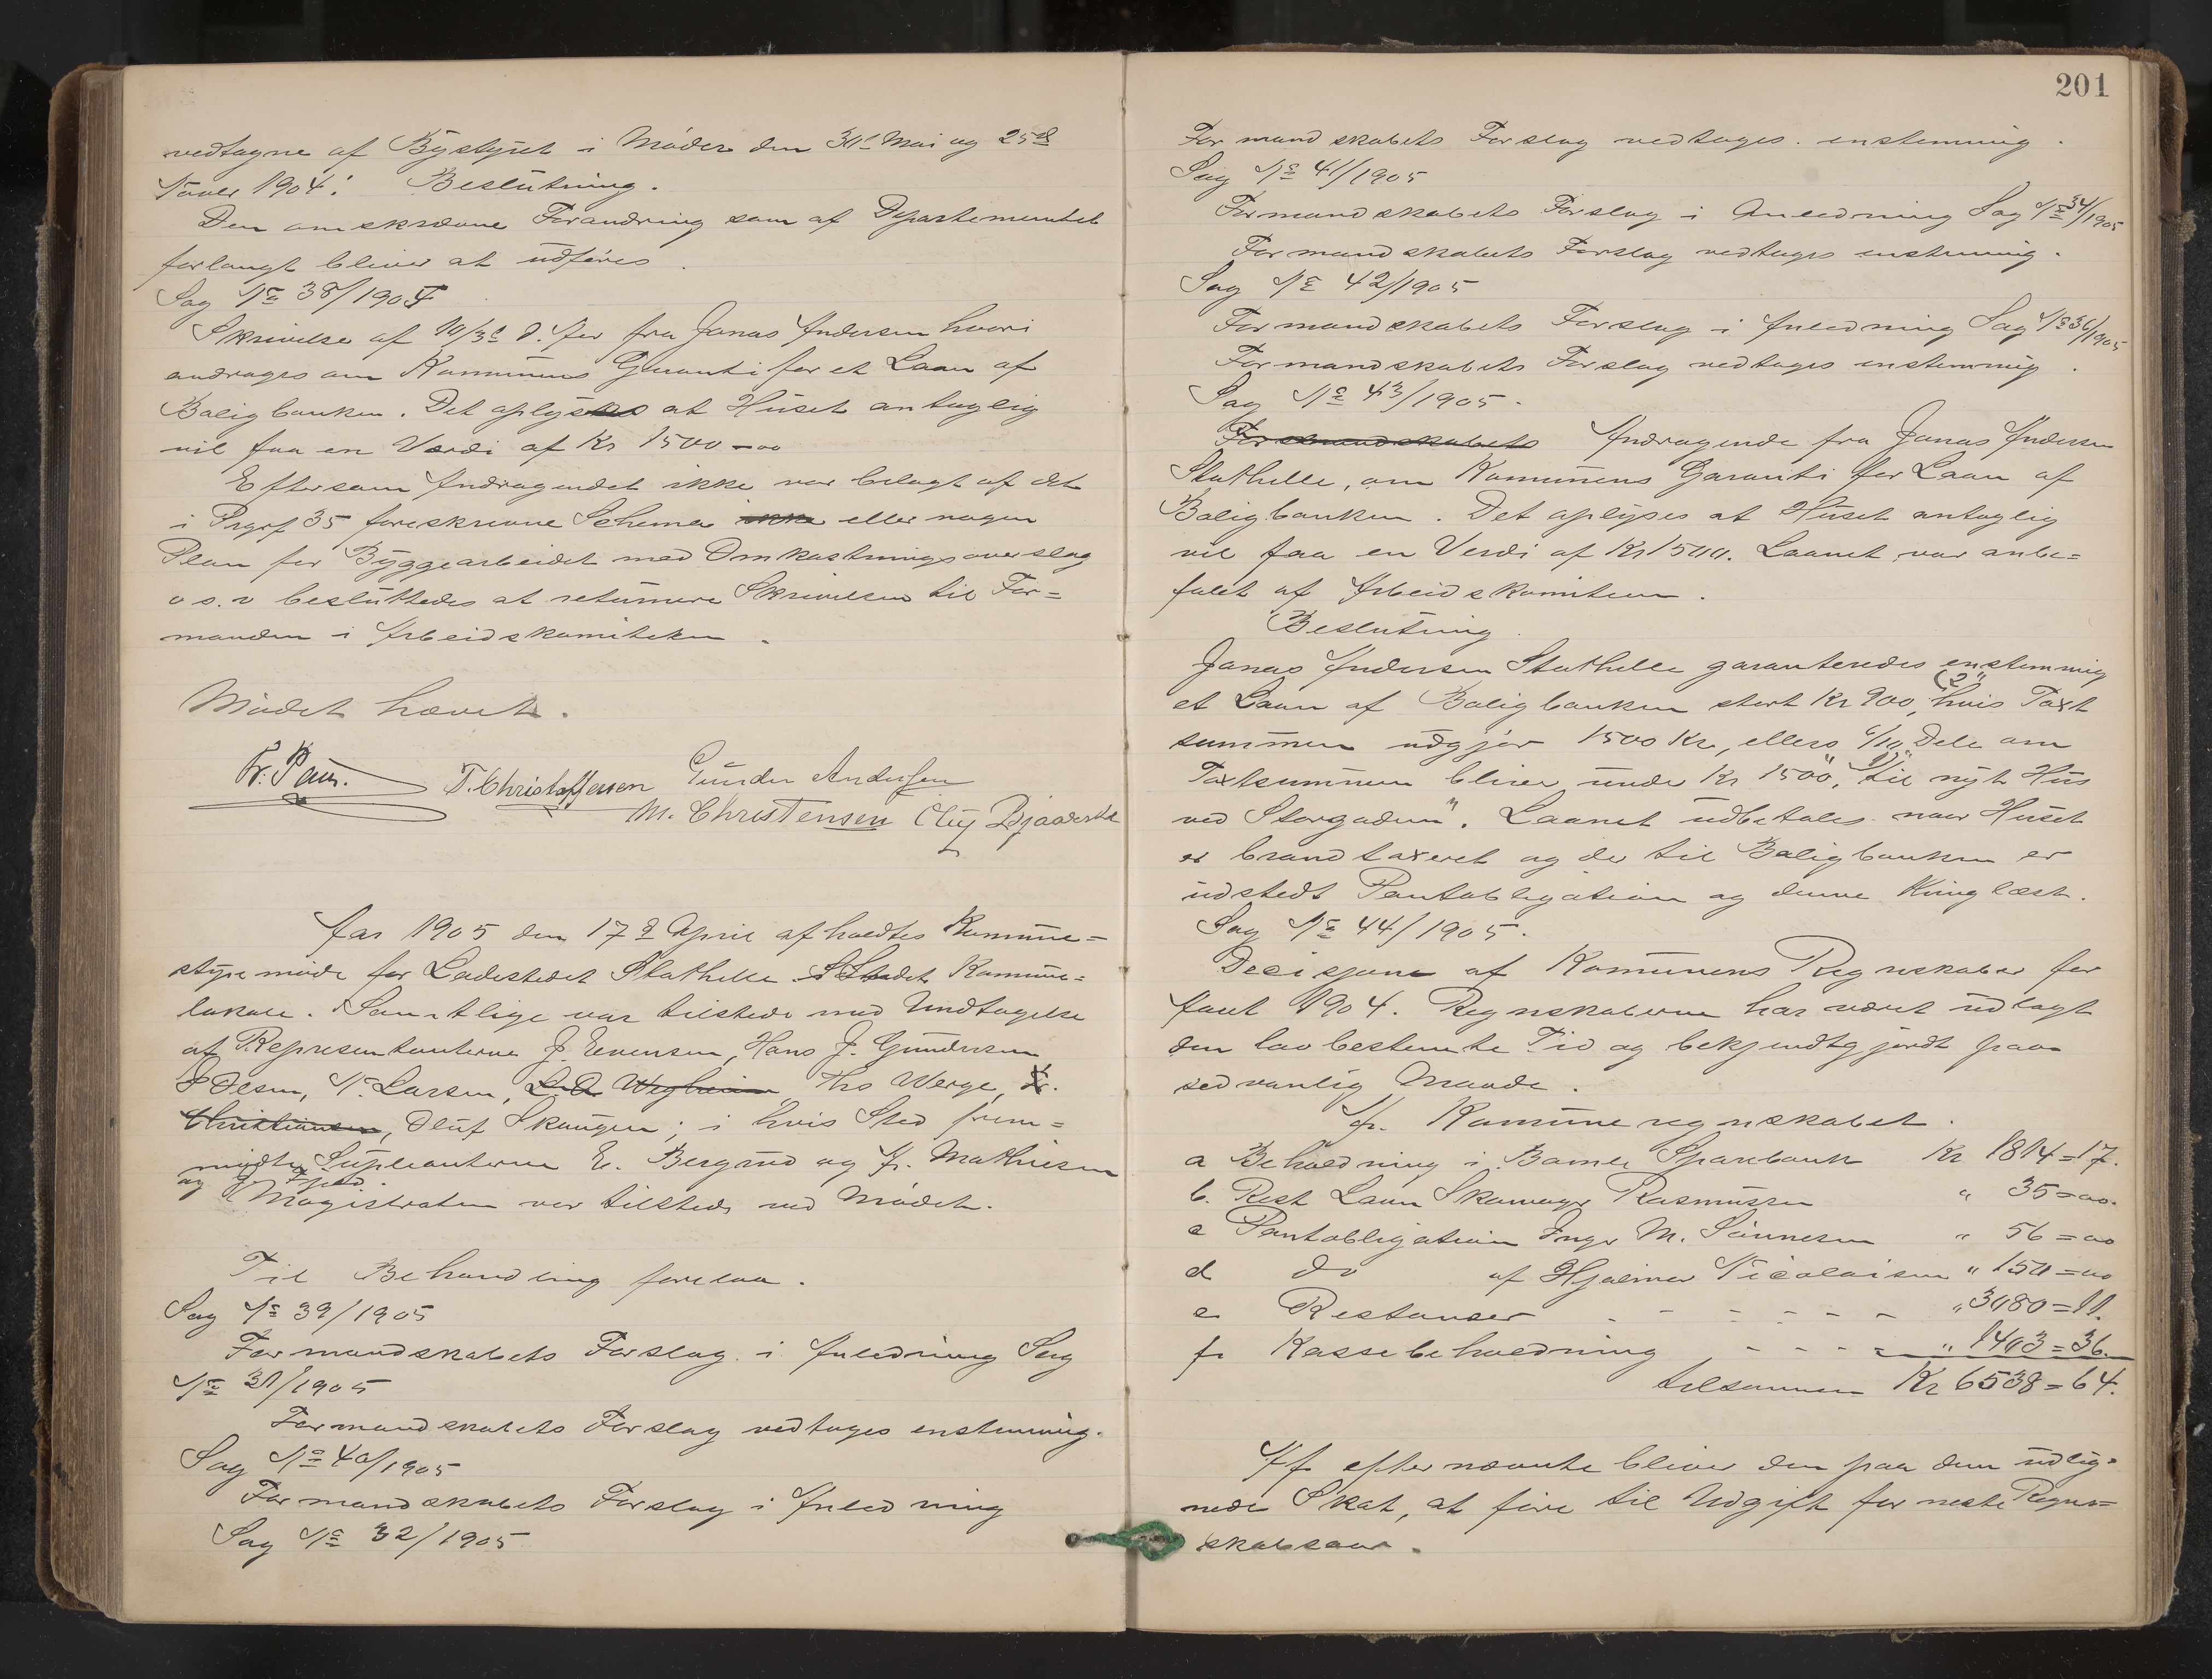 vedtagne af Bystyret i Møder den 31te Mai og 25de
Novbr 1904. Beslutning.
Den omskrevne Forandring som af Departementet
forlangt bliver at udføres.
Sag No 38/1905
Skrivelse af 10/3 d. Aar fra Jonas Andersen hvori
andrages om Kommunens Garanti for et Laan af
Boligbanken. Det oplyses at Huset antagelig
vil faa en Værdi af Kr 1500=00
Eftersom Andragendet ikke var belagt af det
i Prgrf 35 foreskrevne Schema ikke eller nogen
Plan for Byggearbeidet med Omkostningsoverslag
o.s.v besluttedes at returnere Skrivelsen til For=
manden i Arbeidskomiteken.
Mødet hævet.
Fr. Paus. T. Christoffersen Gunder Andersen
M. Christensen Oluf Bjaaderstad
Aar 1905 den 17de April afholdtes Kommune=
styremøde for Ladestedet Stathelle i Stedets Kommune=
lokale. Samtlige var tilstede med Undtagelse
af Repræsentanterne J. Evensen, Hans J. Gundersen
Olsen, N. Larsen, Ths Werge,
Christiansen, Oluf Skaugen; i hvis Sted frem=
mødte Supleanterne E. Bergrud og Fr. Mathiesen
og
Magistraten var tilstede ved Mødet.
Til Behandling forelaa.
Sag No 39/1905
Formandskabets Forslag i Anledning Sag
No 31/1905
Formandskabets Forslag vedtages enstemmig.
Sag No 40/1905
Formandskabets Forslag i Anledning
Sag No 32/1905
201
Formandskabets Forslag vedtages enstemmig.
Sag No 41/1905
Formandskabets Forslag i Anledning Sag No 34/1905
Formandskabets Forslag vedtages enstemmig.
Sag No 42/1905
Formandskabets Forslag i Anledning Sag No 36/1905
Formandskabets Forslag vedtages enstemmig.
Sag No 43/1905.
Formandskabets Andragende fra Jonas Andersen
Stathelle, om Kommunens Garanti for Laan af
Boligbanken. Det oplyses at Huset antaglig
vil faa en Verdi af Kr 1500. Laanet var anbe=
falet af Arbeidskomiteen.
Beslutning.
Jonas Andersen Stathelle garanteredes enstemmig
et Laan af Boligbanken stort Kr 900, hvis Taxt
summen udgjør 1500 Kr, ellers 6/10 Dele om
Taxtsummen bliver under Kr 1500, til nyt Hus
ved Storgaden". Laanet udbetales naar Huset
er brandtaxeret og der til Boligbanken er
udstedt Pantobligation og denne thinglæst.
Sag No 44/1905.
Decisjone af Kommunens Regnskaber for
Aaret 1904. Regnskaberne har været udlagt
den lovbestemte Tid og bekjendtgjordt paa
sedvanlig Maade.
Kommuneregnskabet.
a Beholdning i Bamle Sparebank Kr 1814=17.
b. Rest Laan Skomager Rasmussen " 35=00.
c Pantobligation Inger M. Sønnesen " 56=00
d do af Hjalmar Nicolaisen " 150=00
e Restanser - - - - - " 3080=11.
f. Kassebeholdning - - - - " 1403=36.
tilsammen Kr 6538=64.
Af efternævnte bliver den paa dem udlig=
nede Skat, at føre til Udgift for neste Regn=
skabsaar.